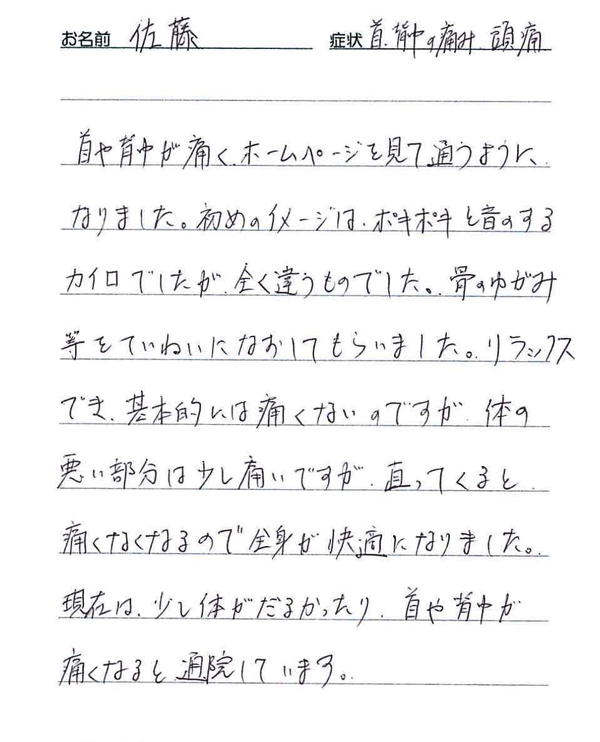 お名前 佐藤 症状 首、背中の痛み、頭痛
首や背中が痛く、ホームページを見て通うように、
なりました。初めのイメージは、ポキポキと音のする
カイロでしたが、全く違うものでした。骨のゆがみ
等をていねいになおしてもらいました。リラックス
でき、基本的には痛くないのですが、体の
悪い部分は少し痛いですが、直ってくると、
痛くなくなるので全身が快適になりました。
現在は、少し体がだるかったり、首や背中が
痛くなると通院しています。